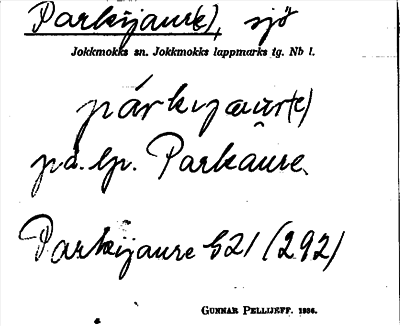 Parkijaur(e), sjö
Jokkmokks sn. Jokkmokks lappmarks tg. Nb l.
párkijaur(e)
på lp. Parkaure.
Parkijaure G21 (292)
GUNNAR PELLIJEFF. 1936.